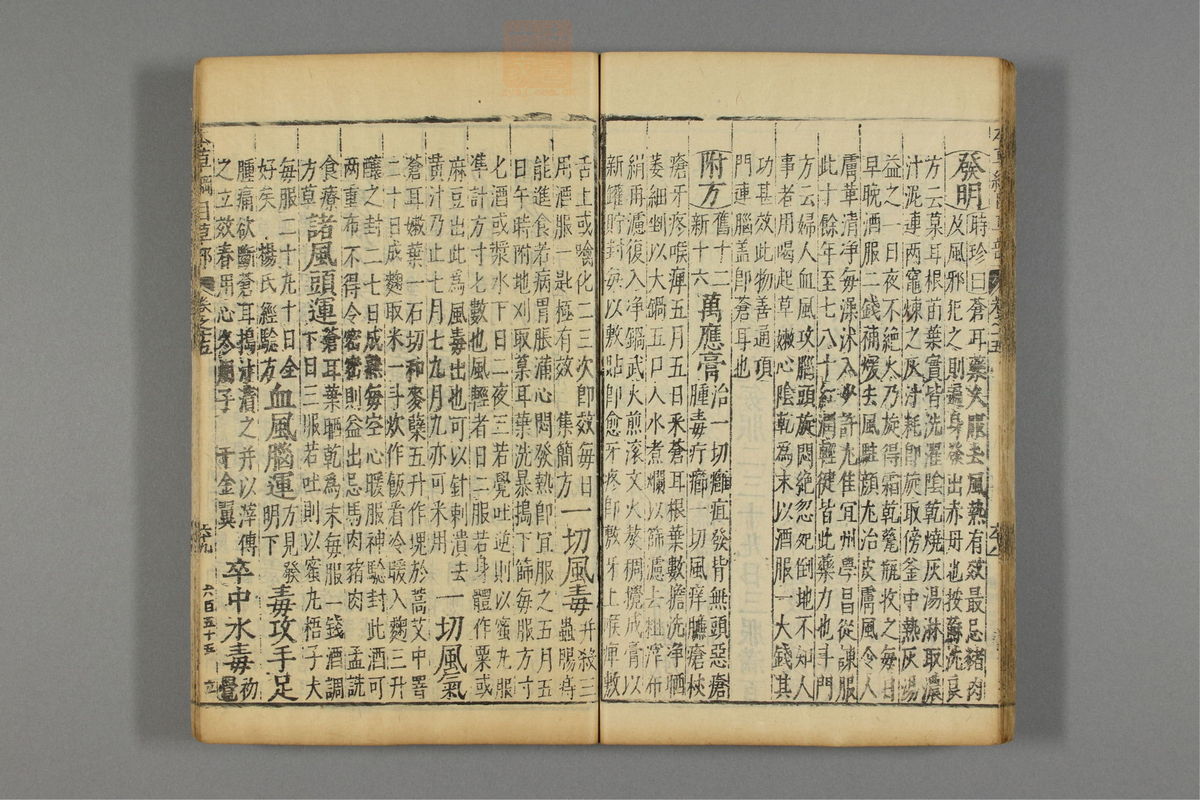 發明時珍曰蒼耳藥久服去風熱有效最忌豬肉
及風邪犯之則遍身發出赤丹也按蘇沈良
方云葈耳根苗葉實皆洗濯陰乾燒灰湯淋取濃
汁泥連兩竈煉之灰汁耗卽旋取傍釜中熱灰湯
益之一日夜不絕火乃旋得霜乾甆瓶收之每日
早晚酒服二錢補煖去風駐顏尤治皮膚風令人
膚革清净每澡沐入少許尤佳宜州學昌從諫服
此十餘年至七八十紅潤輕健皆此藥力也斗門
方云婦人血風攻腦頭旋悶絕忽死倒地不知人
事者用喝起草嫩心陰乾為末以酒服一大錢其
功甚效此物善通頂
門連腦盖卽蒼耳也
附方舊十二新十六萬應膏治一切癰疽發背無頭惡瘡
腫毒疔癤一切風痒臁瘡杖
瘡牙疼喉痺五月五日采蒼耳根葉數擔洗净晒
萎細剉以大鍋五口入水煮爛以篩濾去粗滓布
絹再濾復入净鍋武火煎滾文火熬稠攪成膏以
新罐貯封每以敷貼卽愈牙疼卽敷牙上喉痺敷
舌上或噙化二三次卽效每日
用酒服一匙極有效 集簡方一切風毒并殺三
蟲腸痔
能進食若病胃脹滿心悶發熱卽宜服之五月五
日午時附地刈取葈耳葉洗暴搗下篩每服方寸
匕酒或漿水下日二夜三若覺吐逆則以蜜丸服
準計方寸匕數也風輕者日二服若身體作粟或
麻豆出此為風毒出也可以針刺潰去
黃汁乃止七月七九月九亦可采用一切風氣
蒼耳嫩葉一石切和麥糵五升作塊於蒿艾中罯
二十日成麴取米一斗炊作飯看冷暖入麴三升
釀之封二七日成熟每空心暖服神驗封此酒可
兩重布不得令密密則益出忌馬肉豬肉 孟詵
食療
方草諸風頭運蒼耳葉晒乾為末每服一錢酒調
下日三服若吐則以蜜丸梧子大
每服二十九十日全
好矣 楊氏經驗方血風腦運方見發
明下毒攻手足
腫痛欲斷蒼耳搗汁漬之并以滓傅
之立效春用心冬用子 千金翼卒中水毒初
覺
本草綱目草部 卷之十五 六九 六百五十五